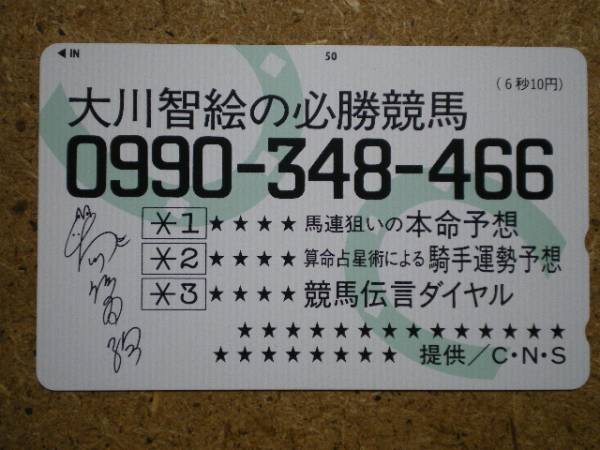 ◀ IN
50
（6秒10円）
大川智絵の必勝競馬
0990-348-466
＊1★★★★ 馬連狙いの本命予想
＊2★★★★ 算命占星術による騎手運勢予想
＊3★★★★ 競馬伝言ダイヤル
★★★★★★★★★★★★★★
★★★★★★★ 提供／C・N・S